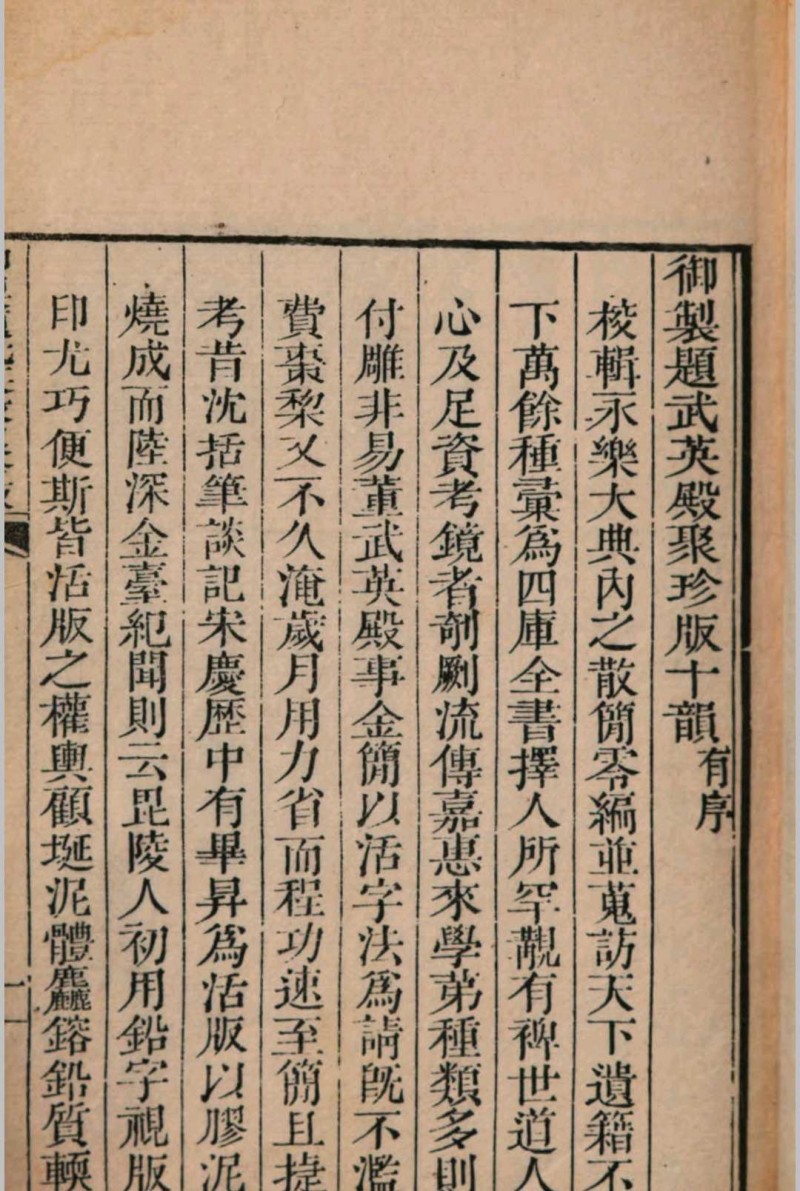 御製題武英殿聚珍版十韻有序
校輯永樂大典內之散簡零編並蒐訪天下遺籍不
下萬餘種彚為四庫全書擇人所罕覯有裨世道人
心及足資考鏡者剞劂流傳嘉惠來學第種類多則
付雕非易董武英殿事金簡以活字法為請既不濫
費棗棃又不久淹歲月用力省而程功速至簡且捷
考昔沈括筆談記宋慶歷中有畢昇為活版以膠泥
燒成而陸深金臺紀聞則云毘陵人初用鉛字視版
印尤巧便斯皆活版之權輿顧埏泥體麤鎔鉛質輭